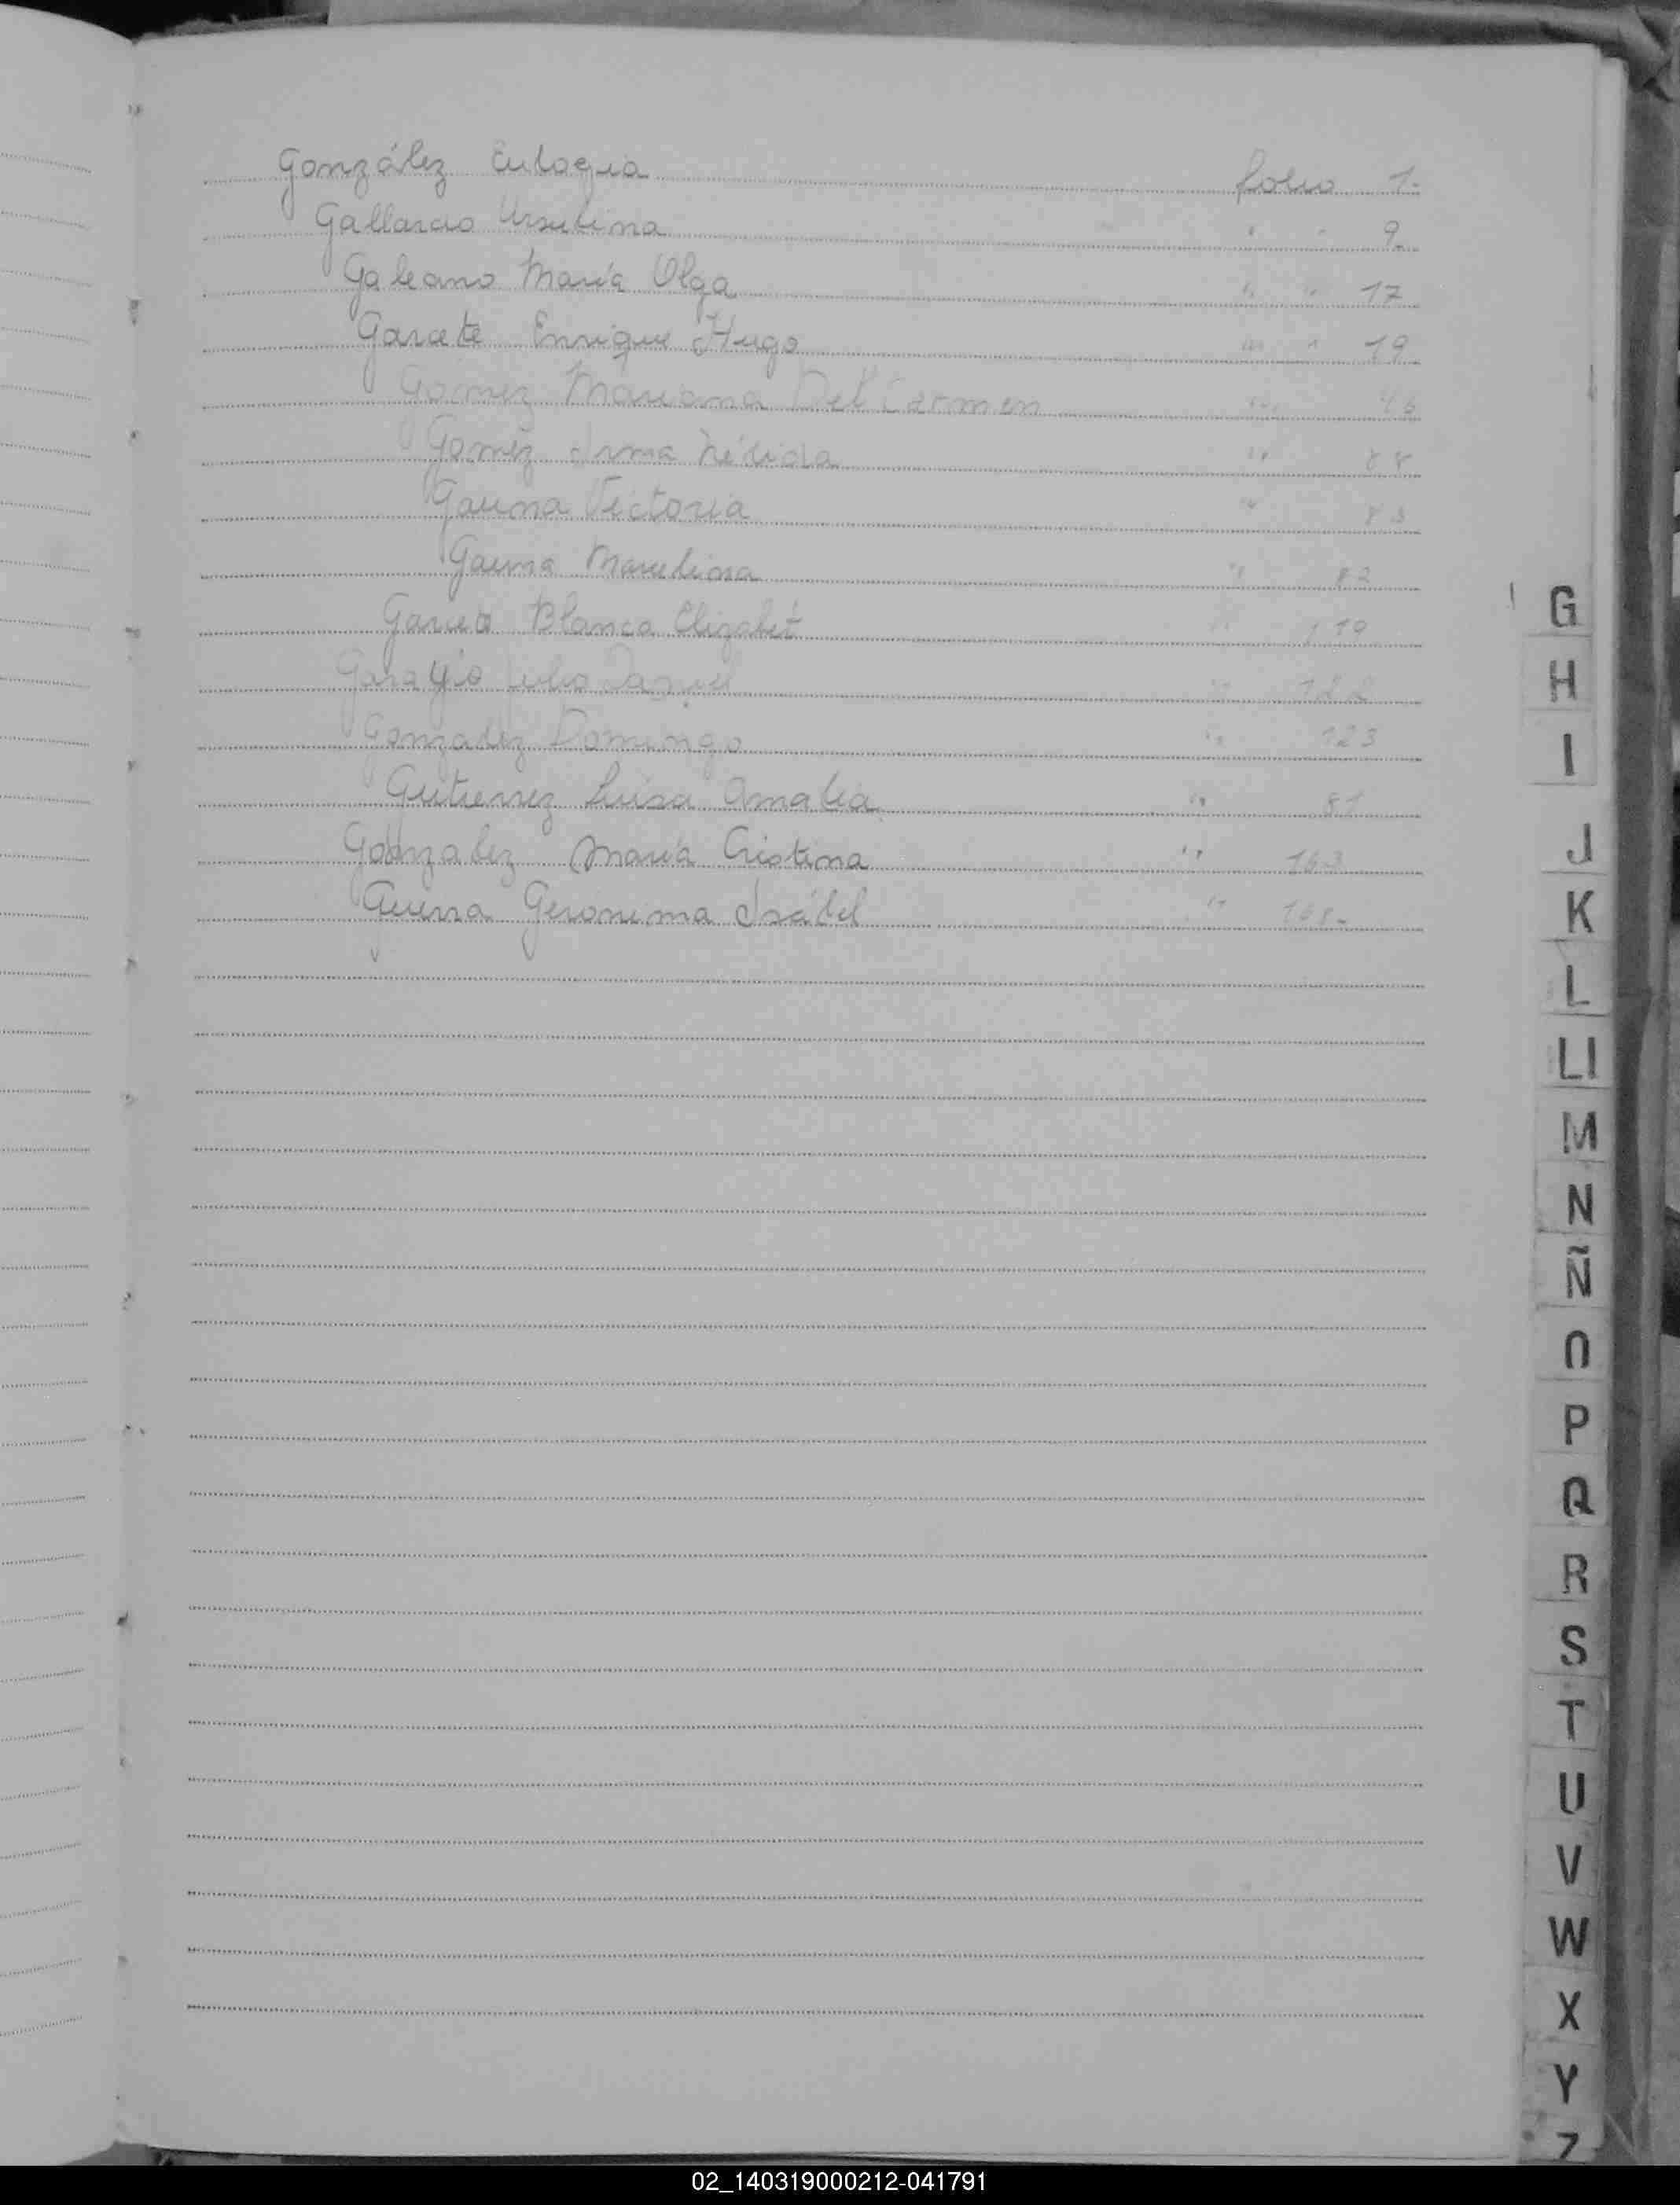 González Eulogia folio 1.
Gallardo Ursulina " " 9.
Galeano María Olga " " 17
Garcete Enrique Hugo " " 19
Gomez Mariana Del Carmen " 46
Gomez Irma Nélida " 88
Gauna Victoria " 83
Gauna Marcelina " 82
Blanca Elizabet " 119
Julio " 122
Gonzalez Domingo " 123
Gutierrez Luisa Amalia " 81
Gonzalez María Cristina " 163
Guerra Geronima Isábel " 168-
G
H
I
J
K
L
Ll
M
N
Ñ
O
P
Q
R
S
T
U
V
W
X
Y
Z
02_140319000212-041791